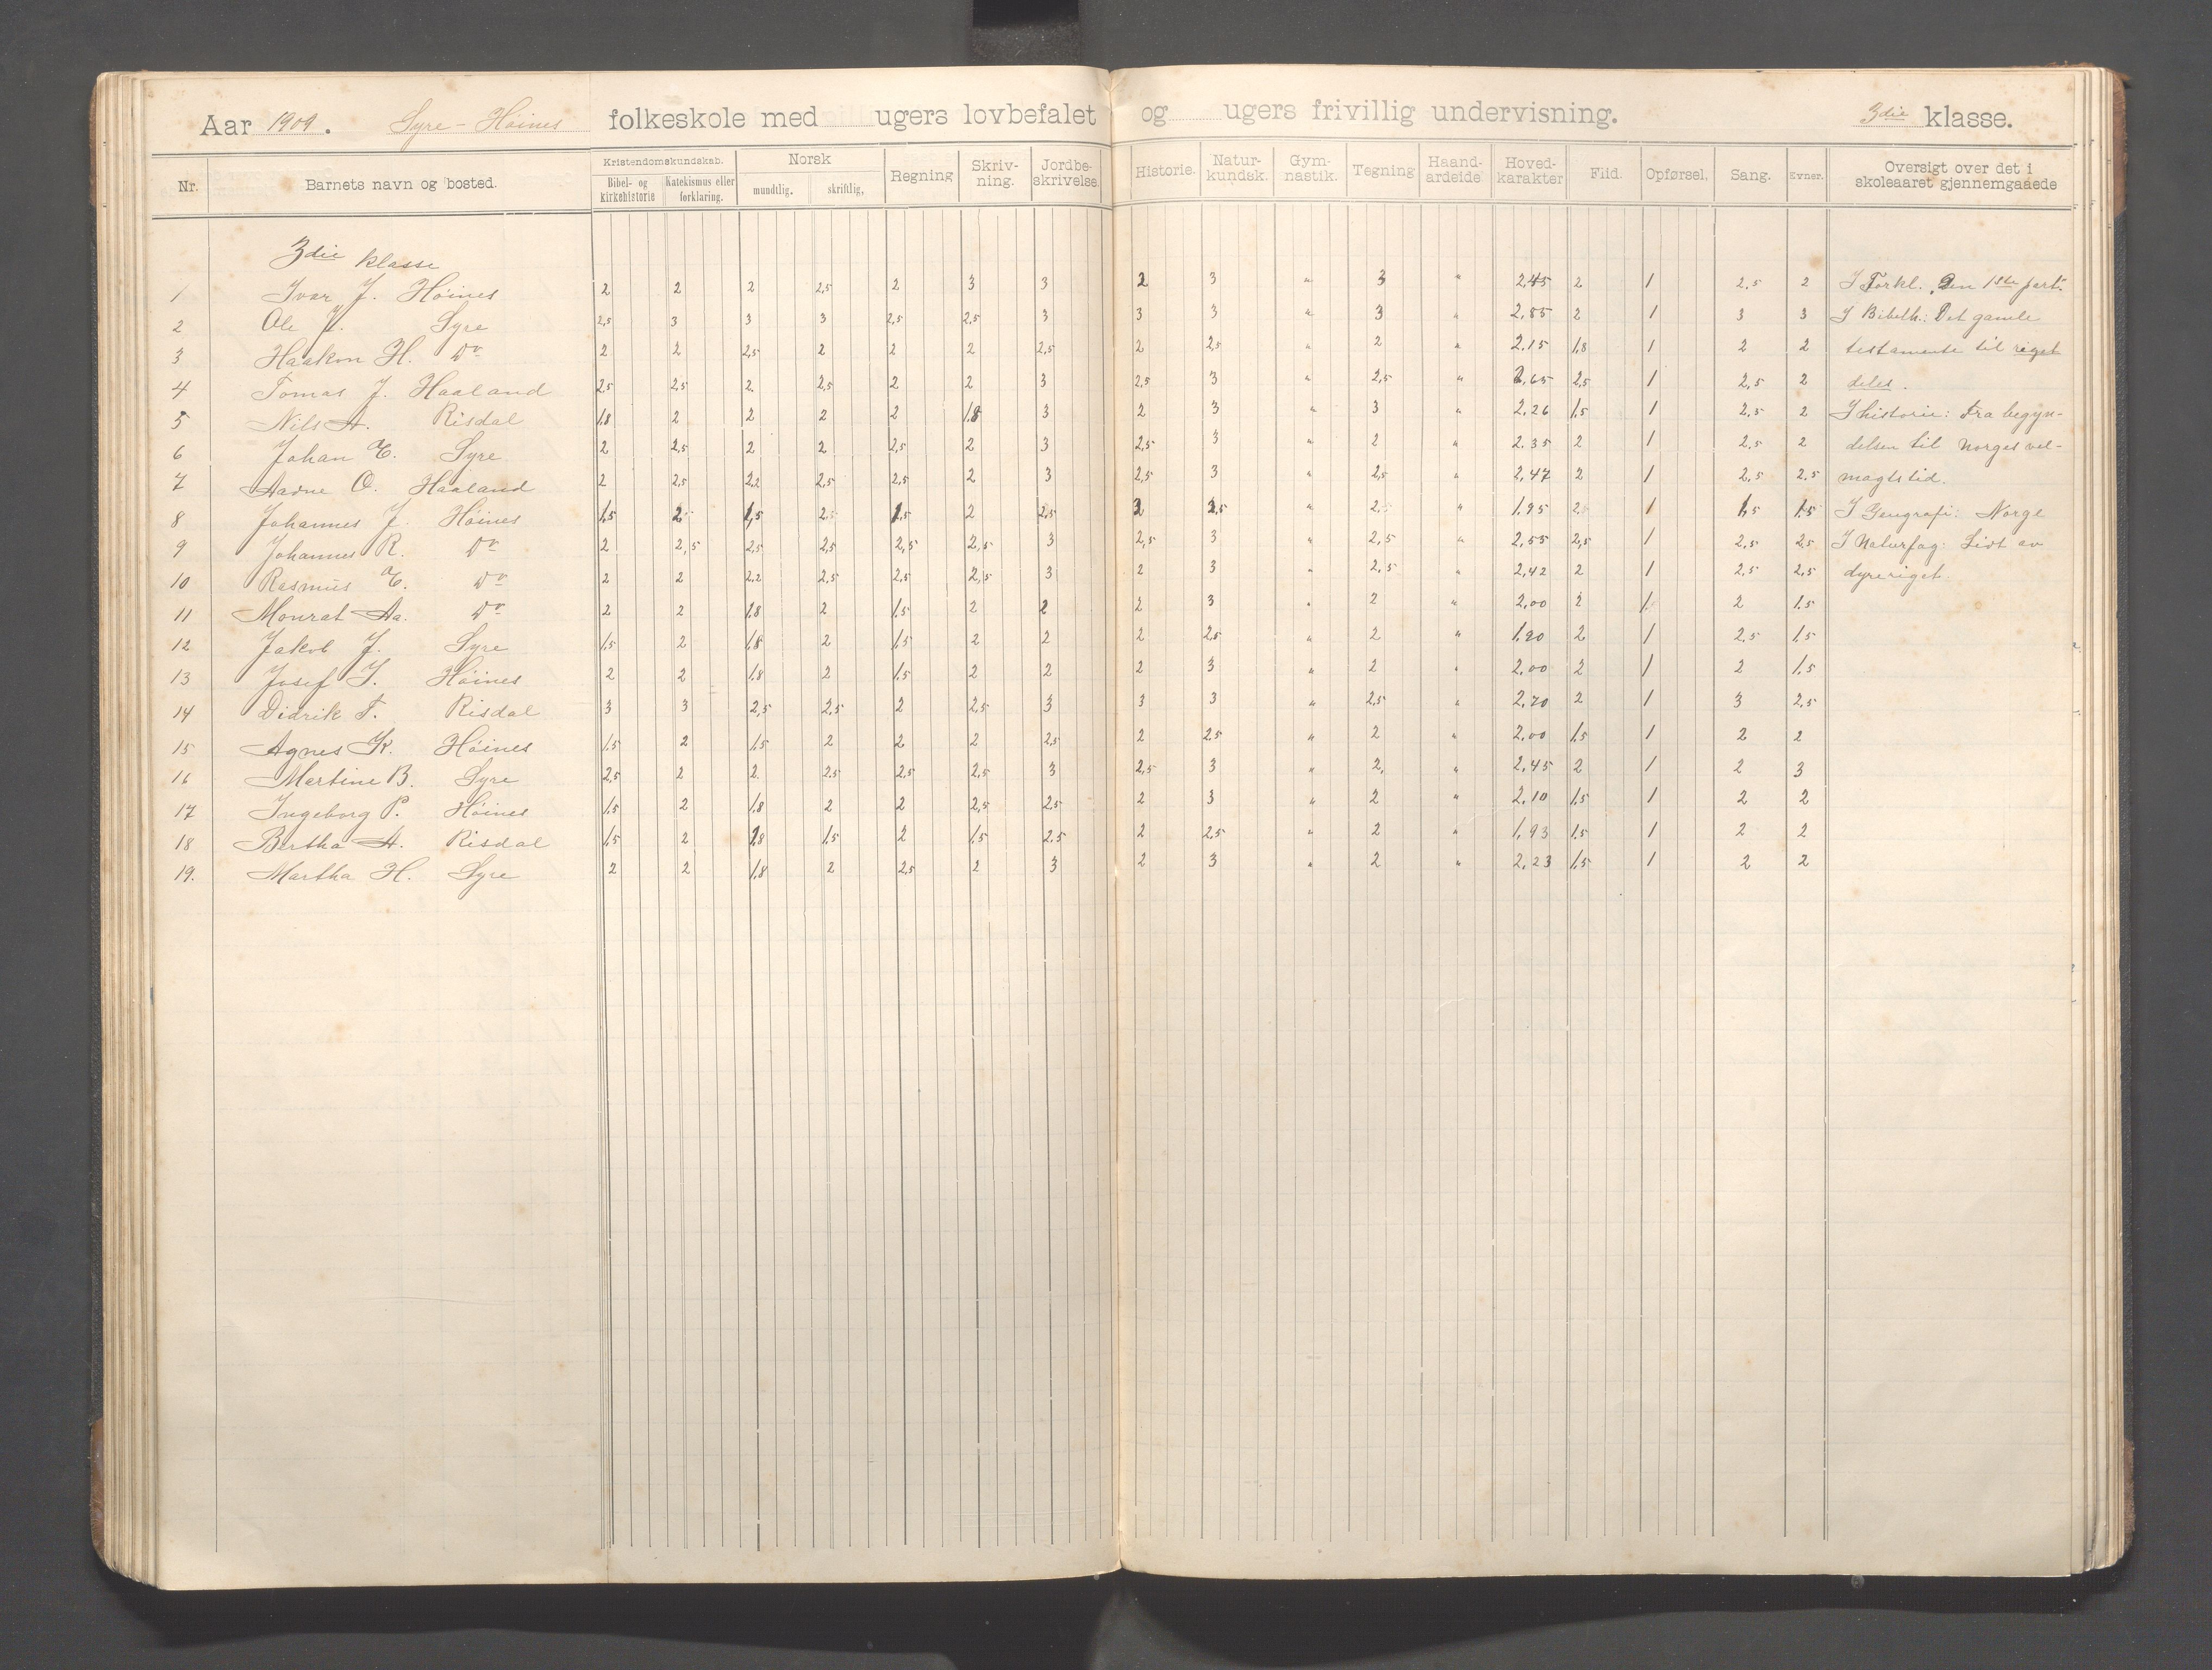 Aar 1909. Syre-Höines folkeskole med ugers lovbefalet og ugers frivillig undervisning. 3die klasse.
Nr. Barnets navn og bosted. Kristendomskundskab. Bibel- og kirkehistorie Katekismus eller forklaring. Norsk mundtlig. skriftlig. Regning Skriv-ning. Jordbe-skrivelse. Historie. Natur-kundsk. Gym-nastik. Tegning Haand-ardeide Hoved-karakter Flid. Opførsel. Sang. Evner. Oversigt over det i skoleaaret gjennemgaaede
3die klasse
1 Ivar J. Höines 2 2 2 2,5 2 3 3 2 3 " 3 " 2,45 2 1 2,5 2 I Forkl. Den 1ste part.
2 Ole J. Syre 2,5 3 3 3 2,5 2,5 3 3 3 " 3 " 2,85 2 1 3 3 I Bibelh.: Det gamle
3 Haakon H. Do 2 2 2,5 2 2 2 2,5 2 2,5 " 2 " 2.15 1,8 1 2 2 testamente til riget
4 Tomas J. Haaland 2,5 2,5 2. 2,5 2 2 3 2,5 3 " 2,5 " 2,65 2,5 1 2,5 2 deles.
5 Nils A. Risdal 1,8 2 2 2 2 1,8 3 2 3 " 3 " 2,26 1,5 1 2,5 2 I historie: Fra begyn-
6 Johan E. Syre 2 2,5 2 2 2,5 2 3 2,5 3 " 2 " 2.35 2 1 2,5 2 delsen til Norges vel-
7 Aadne O. Haaland 2 2,5 2,2 2,5 2,5 2 3 2,5 3 " 2,5 " 2,47 2 1 2,5 2,5 magtstid.
8 Johannes J. Höines 1,5 2 1,5 2 1,5 2 2,5 2 2,5 " 2 " 1.95 2 1 1,5 1,5 I Geografi: Norge
9 Johannes R. Do 2 2,5 2,5 2,5 2,5 2,5 3 2,5 3 " 2,5 " 2,55 2,5 1 2,5 2,5 I Naturfag: Lidt av
10 Rasmus E. Do 2 2 2,2 2,5 2,5 2,5 3 2 3 " 2,5 " 2,42 2 1 2,5 2,5 dyreriget.
11 Monrat Aa. Do 2 2 1,8 2 1,5 2 2 2 3 " 2 " 2,00 2 1 2 1,5
12 Jakob J. Syre 1,5 2 1,8 2 1,5 2 2 2 2,5 " 2 " 1,90 2 1 2,5 1,5
13 Josef I. Höines 2 2 1,8 2 1,5 2 2 2 3 " 2 " 2,00 2 1 2 1,5
14 Didrik T. Risdal 3 3 2,5 2,5 2 2,5 3 3 3 " 2,5 " 2,70 2 1 3 2,5
15 Agnes K. Höines 1,5 2 1,5 2 2 2 2,5 2 2,5 " 2 " 2,00 1,5 1 2 2
16 Martine B. Syre 2,5 2 2. 2,5 2,5 2,5 3 2,5 3 " 2, " 2,45 2 1 2 3
17 Ingeborg P. Höines 1,5 2 1,8 2 2 2,5 2,5 2 3 " 2 " 2,10 1,5 1 2 2
18 Bertha A. Risdal 1,5 2 1,8 1,5 2 1,5 2,5 2 2,5 " 2 " 1,93 1,5 1 2 2
19. Martha H. Syre 2 2 1,8 2 2,5 2 3 2 3 " 2 " 2,23 1,5 1 2 2